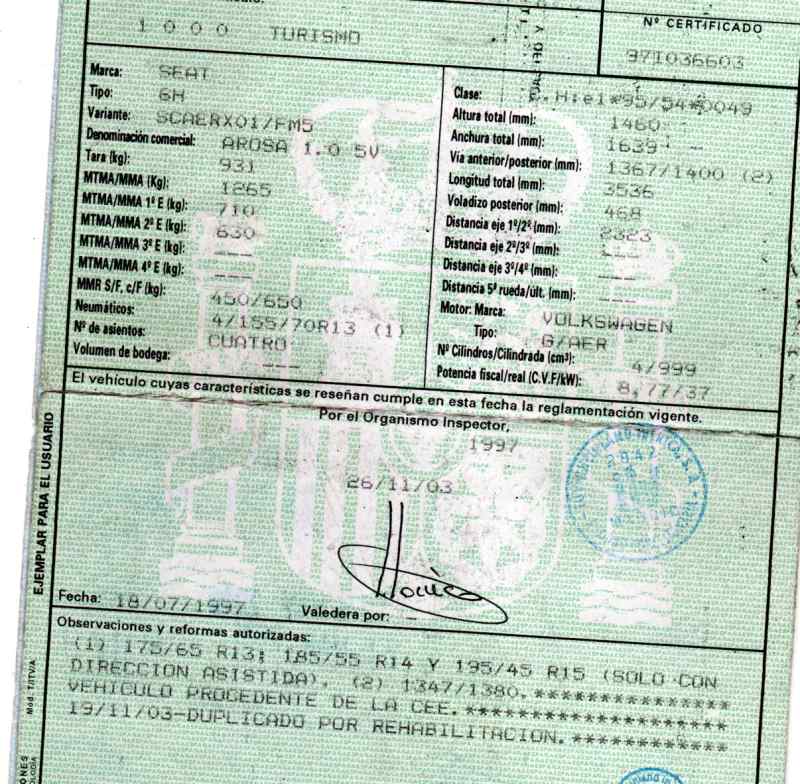 1000 TURISMO
Nº CERTIFICADO
971036603
Marca: SEAT
Tipo: 6H
Variante: SCAERX01/FM5
Denominación comercial: AROSA 1.0 5V
Tara (kg): 931
MTMA/MMA (Kg): 1265
MTMA/MMA 1º E (kg): 710
MTMA/MMA 2º E (kg): 630
MTMA/MMA 3º E (kg): ---
MTMA/MMA 4º E (kg): ---
MMR S/F, c/F (kg): 450/650
Neumáticos: 4/155/70R13 (1)
Nº de asientos: CUATRO
Volumen de bodega: ---
Clase: .H:e1*95/54*0049
Altura total (mm): 1460
Anchura total (mm): 1639 --
Vía anterior/posterior (mm): 1367/1400 (2)
Longitud total (mm): 3536
Voladizo posterior (mm): 468
Distancia eje 1º/2º (mm): 2323
Distancia eje 2º/3º (mm): ---
Distancia eje 3º/4º (mm): ---
Distancia 5ª rueda/últ. (mm): ---
Motor: Marca: VOLKSWAGEN
Tipo: G/AER
Nº Cilindros/Cilindrada (cm³): 4/999
Potencia fiscal/real (C.V.F/kW): 8,77/37
El vehículo cuyas características se reseñan cumple en esta fecha la reglamentación vigente.
Por el Organismo Inspector,
1997
26/11/03
EJEMPLAR PARA EL USUARIO
Fecha: 18/07/1997 Valedera por: —
Observaciones y reformas autorizadas:
(1) 175/65 R13; 185/55 R14 Y 195/45 R15 (SOLO CON
DIRECCION ASISTIDA). (2) 1347/1380.***************
VEHICULO PROCEDENTE DE LA CEE.********************
19/11/03-DUPLICADO POR REHABILITACION.************
Mod. T/ITV/A